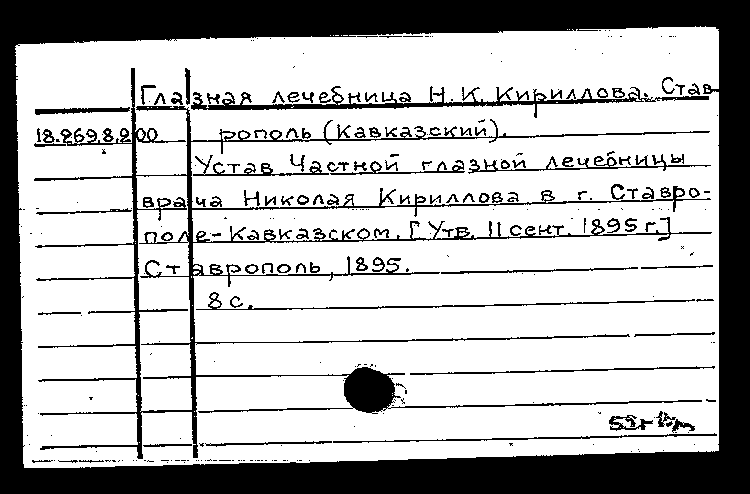 Глазная лечебница Н. К. Кириллова. Став-
18.269.8.200 рополь (Кавказский).
Устав Частной глазной лечебницы
врача Николая Кириллова в г. Ставро-
поле-Кавказском. [Утв. 11 сент. 1895 г.]
Ставрополь, 1895.
8 с.